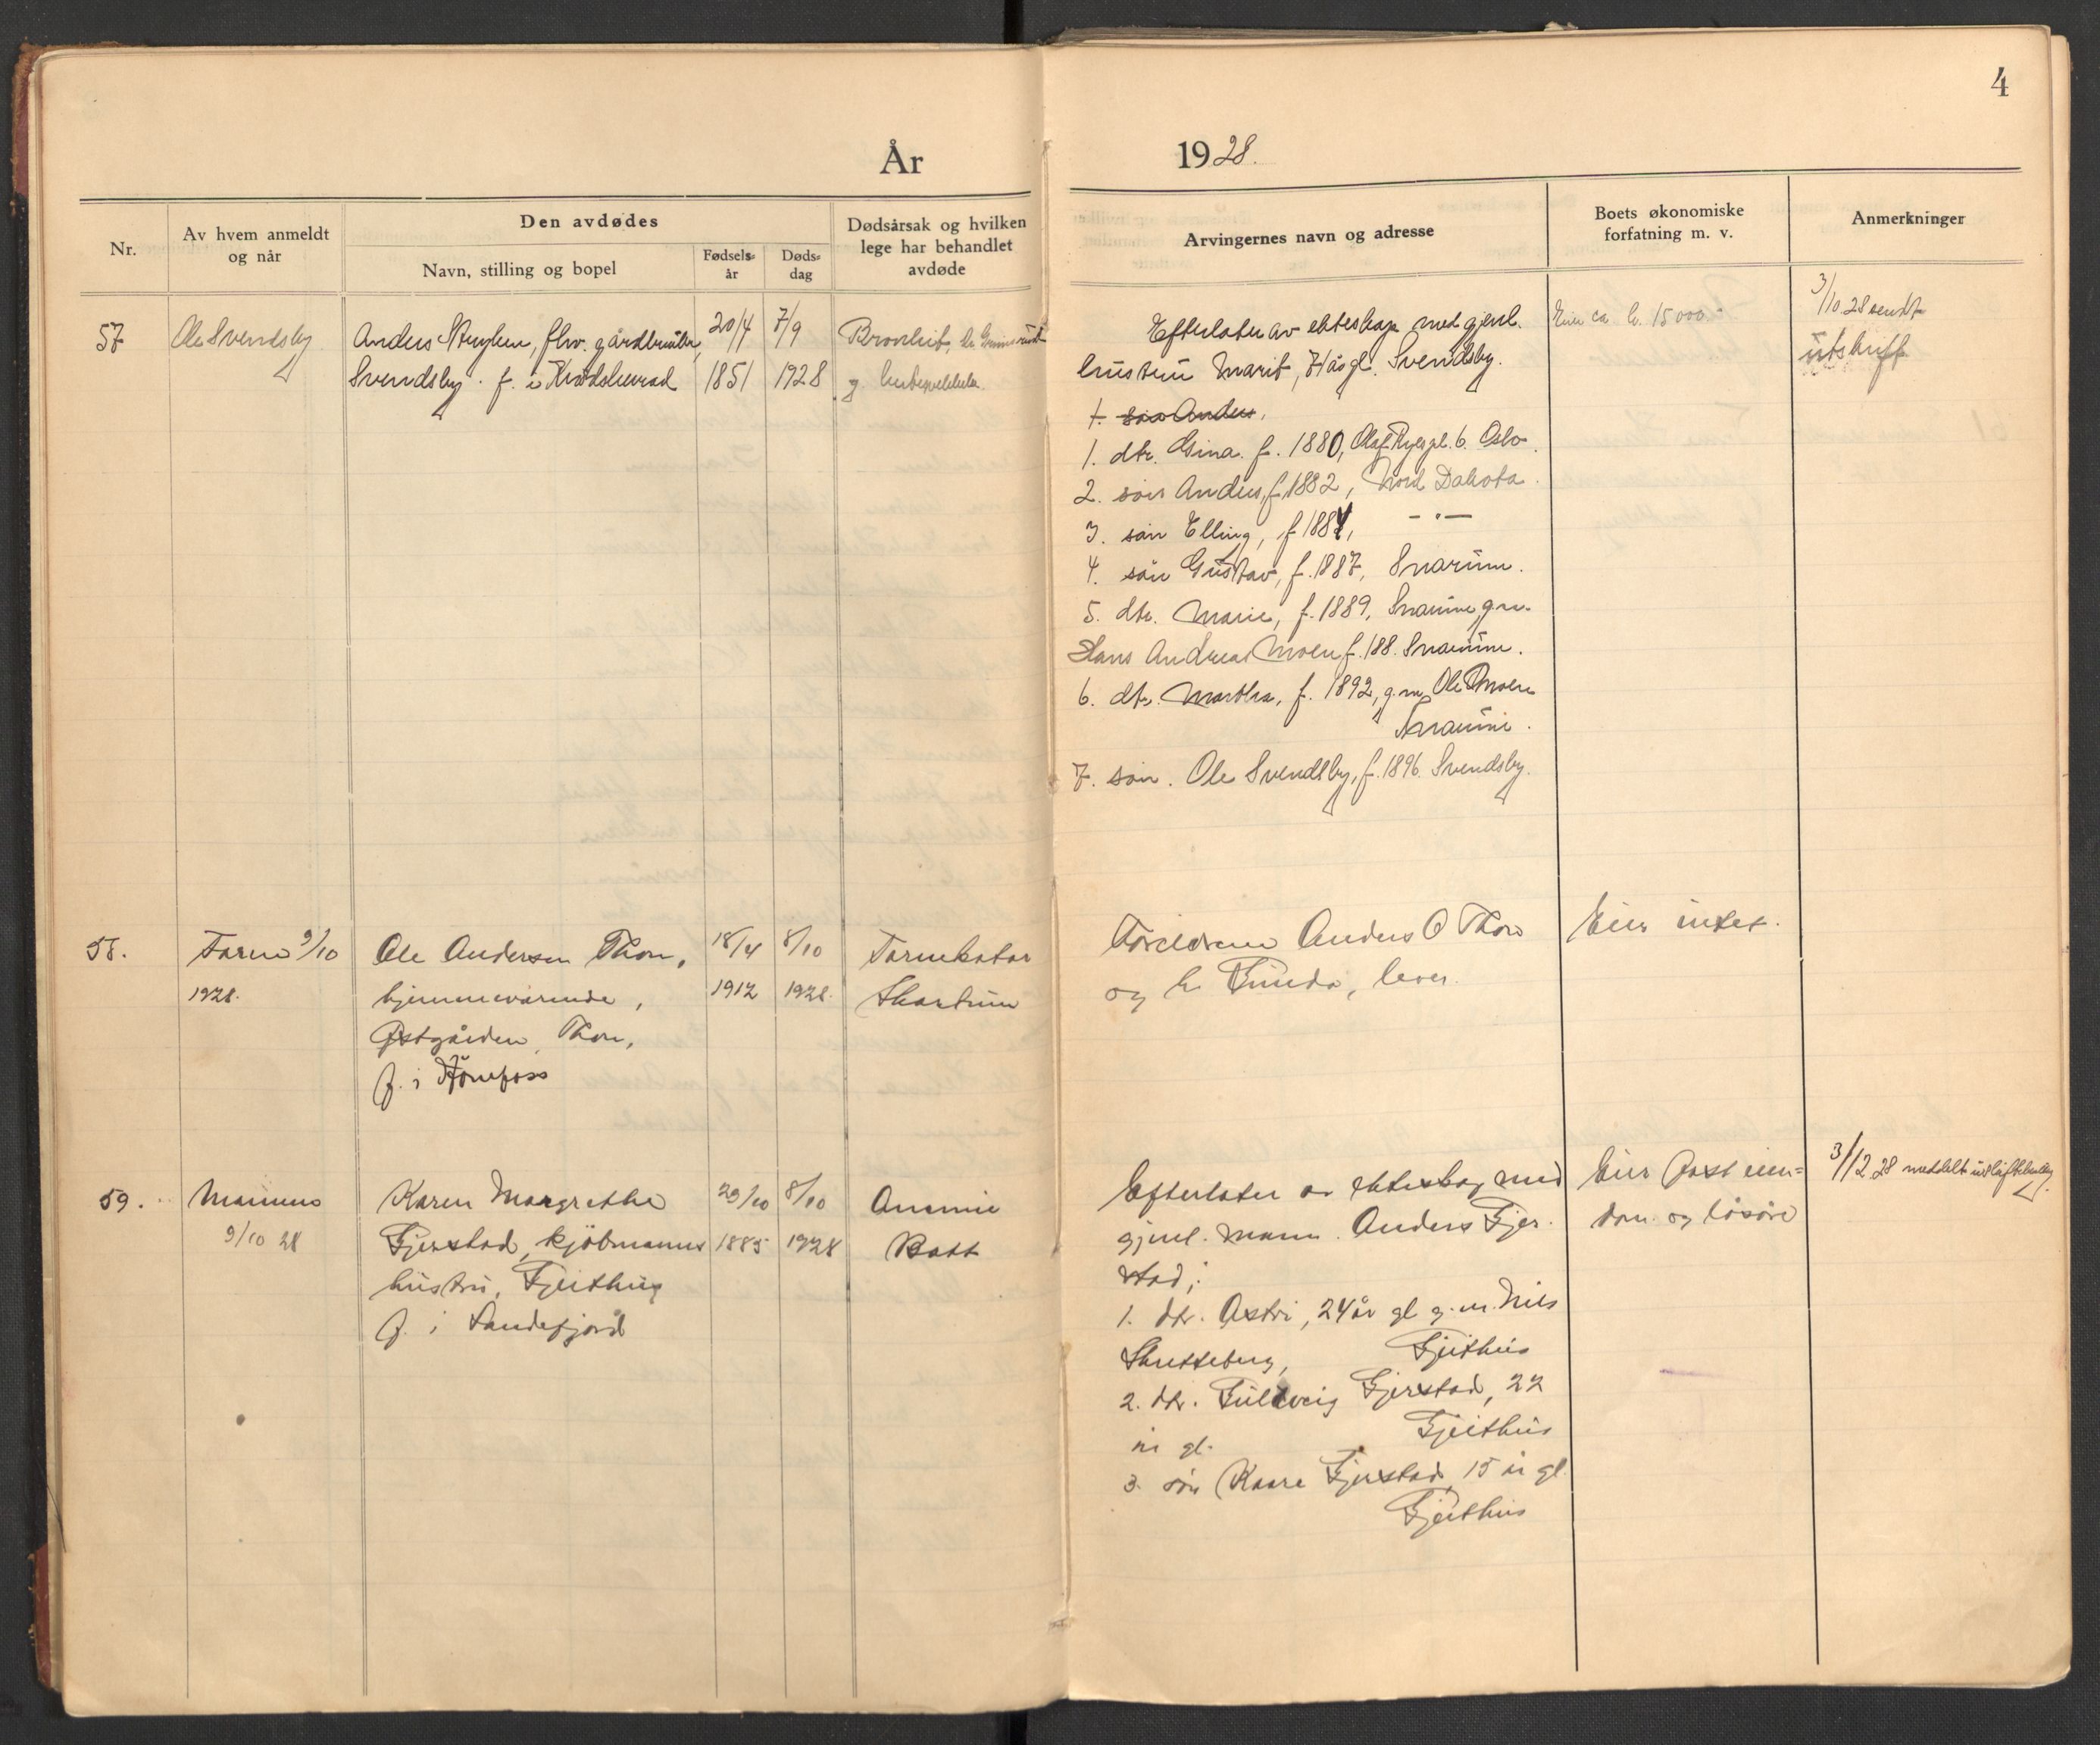 4
År 1928.
Nr.
Av hvem anmeldt
og når
Den avdødes
Navn, stilling og bopel
Fødsels-
år
Døds-
dag
Dødsårsak og hvilken
lege har behandlet
avdøde
Arvingernes navn og adresse
Boets økonomiske
forfatning m. v.
Anmerkninger
57
Ole Svendsby
Anders fhv. gårdbruker,
Svendsby. f. i Krødsherad
20/4
1851
7/9
1928
Bronkit,
og
Efterlater av ekteskap med gjenl.
hustru Marit, 7 år gl. Svendsby.
1. søn Anders,
1. dtr. Gina. f. 1880, Olaf Ryes pl. 6. Oslo.
2. søn Anders, f. 1882, Nord Dakota.
3. søn Elling, f 1884, — " —
4. søn Gustav, f. 1887, Snarum.
5. dtr. Marie, f. 1889, Snarum, g.m.
Hans Andreas Moen f. 188. Snarum.
6. dtr. Martha, f. 1892, g.m. Ole Moen
Snarum.
7. søn. Ole Svendsby, f. 1896. Svendsby.
Eier ca. kr. 15000.-
3/10 28 sendt
utskrift
58.
Faren 9/10
1928.
Ole Andersen Thon,
hjemmeværende,
Østgården Thon,
f. i Hønefoss
18/4
1912
8/10
1928.
Tarmkatar
Skartum
Forældrene Anders O Thon
og h. Gunda, lever.
Eier intet.
59.
Mannen
9/10 28
Karen Margrethe
Gjerstad, kjøbmanns
hustru, Gjeithus
f. i Sandefjord
29/10
1885
8/10
1928
Anæmie
Batt
Efterlater av ekteskap med
gjenl. mann. Anders Gjer-
stad;
1. dtr. Astri, 24 år gl g.m. Nils
Skutteberg, Gjeithus
2. dtr. Gulveig Gjerstad, 22
år gl. Gjeithus
3. søn Kaare Gjerstad, 15 år gl.
Gjeithus
Eier fast eien=
dom og løsøre
3/12 28 meddelt uskiftebevilg.